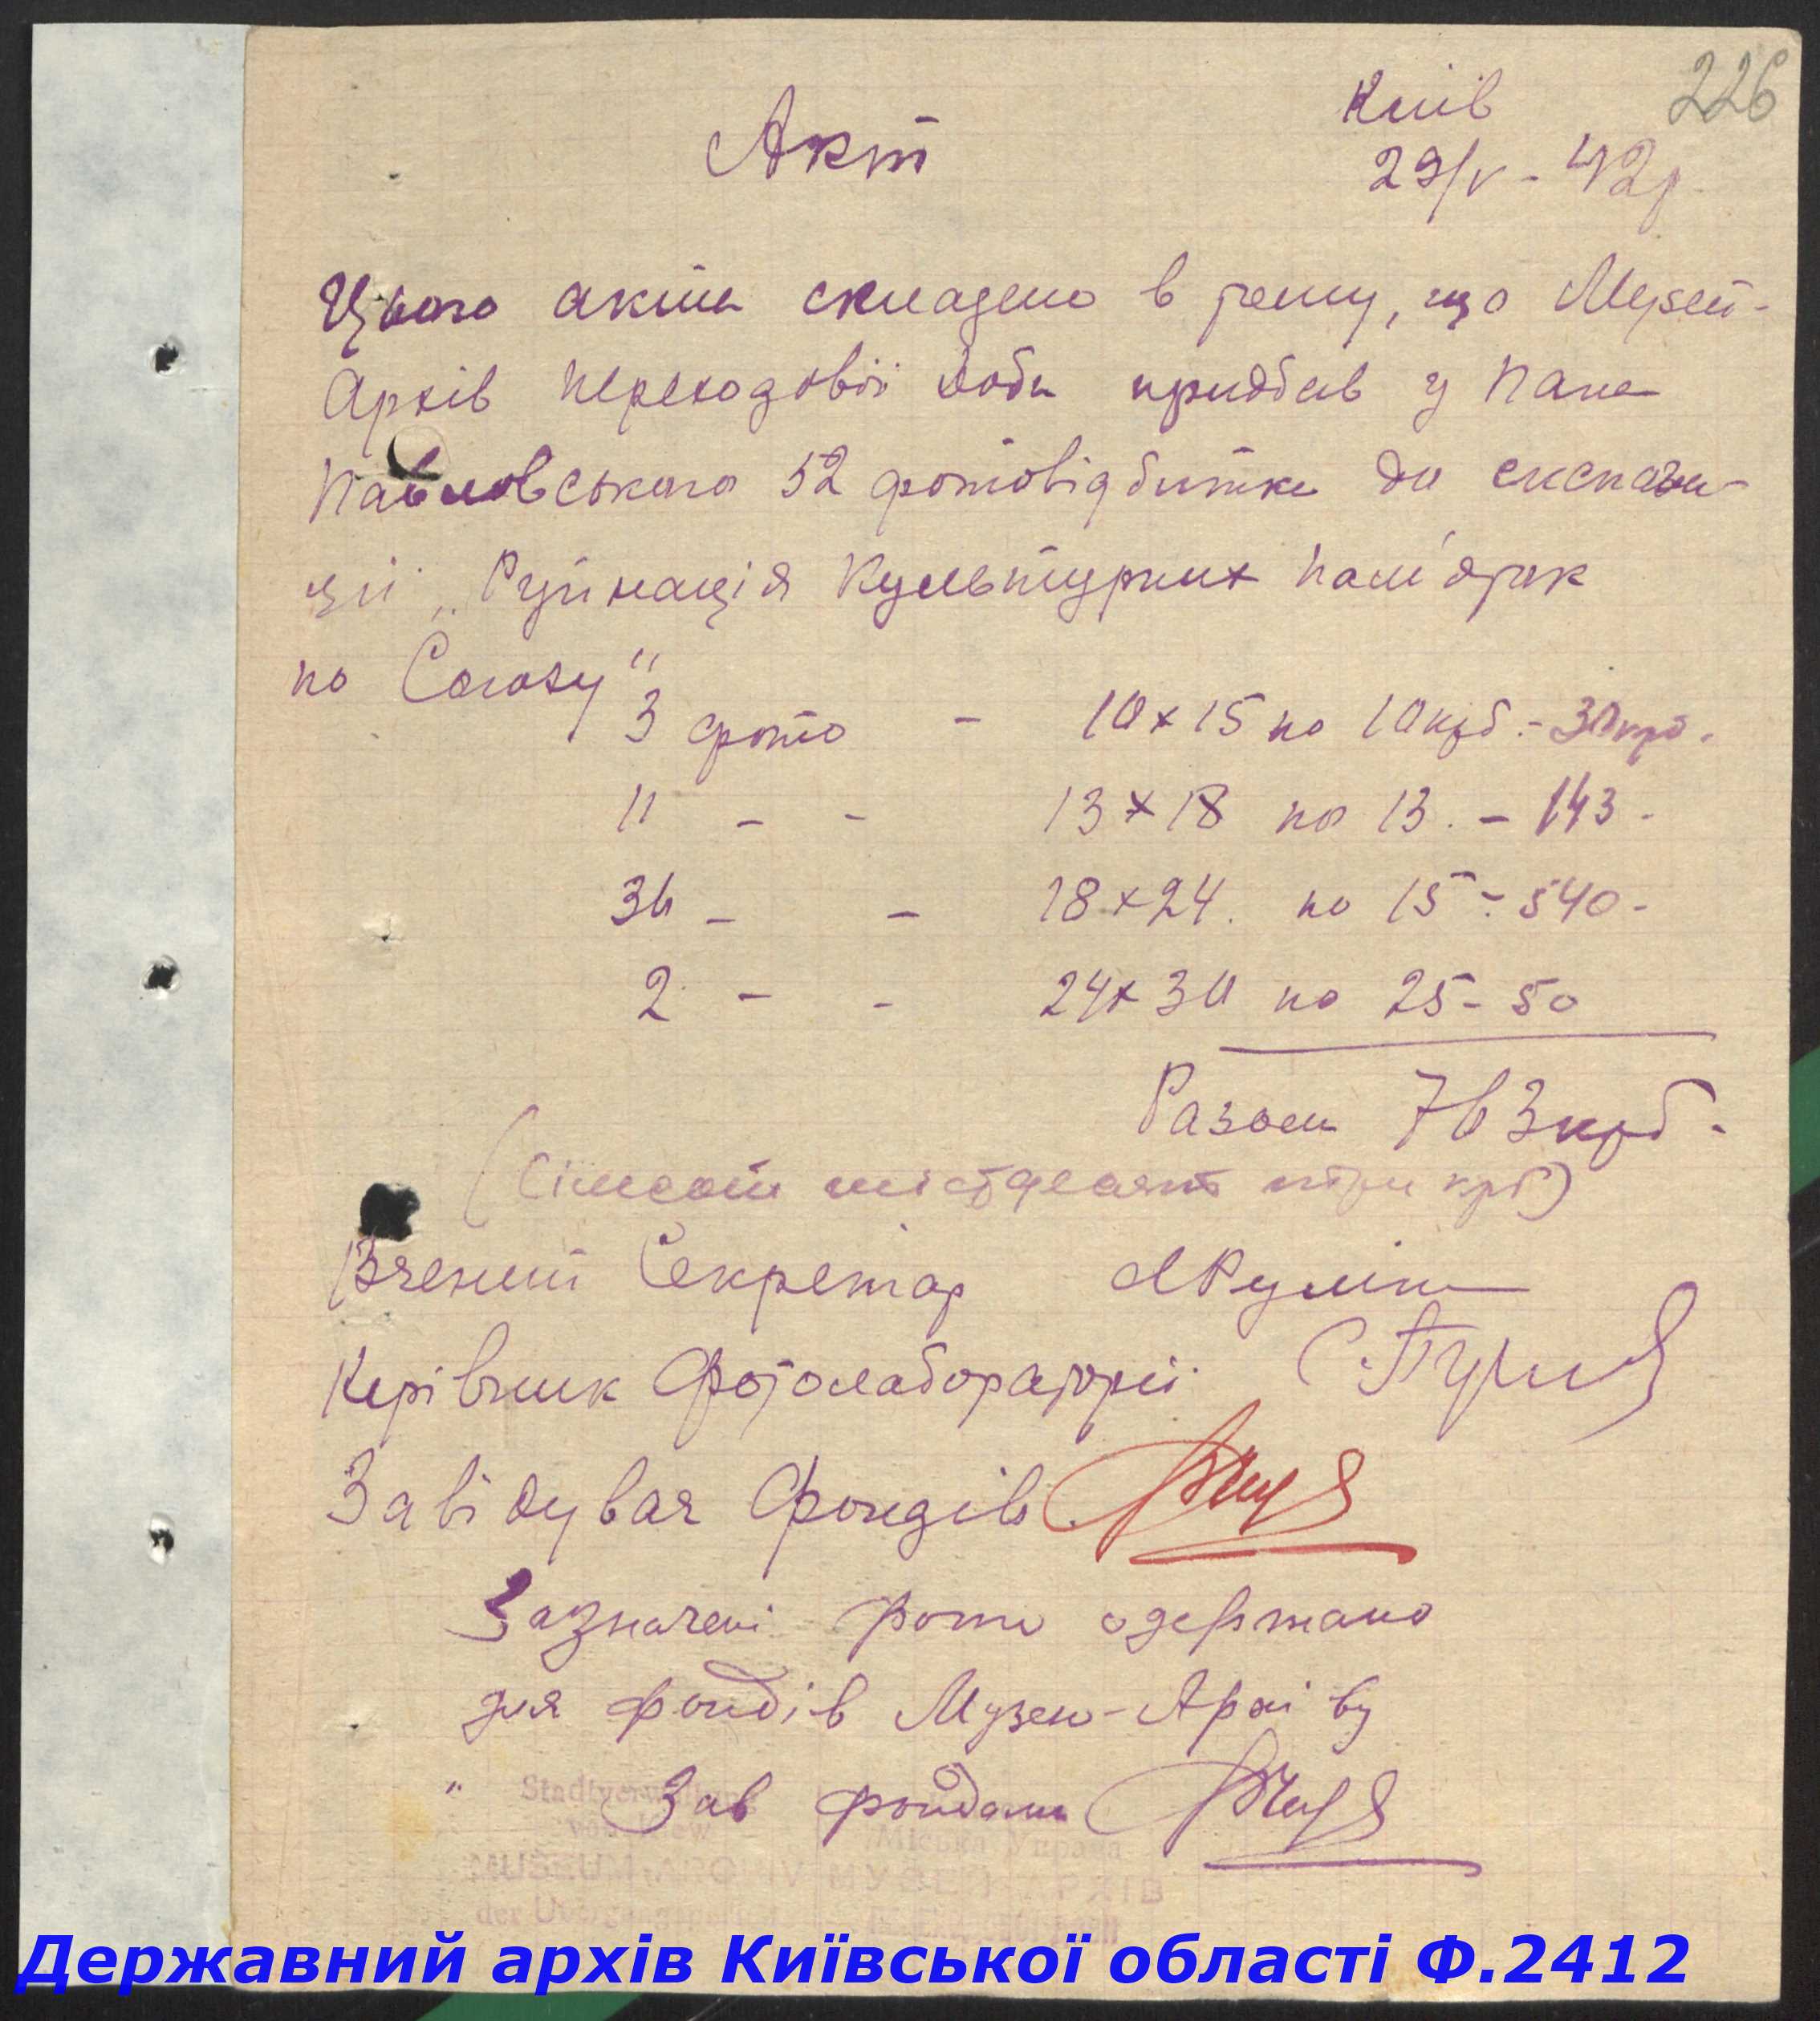 226
Київ
Акт
29/V - 42р.
Цього акта складено в тому, що Музей-
Архів переходової доби придбав у пана
Павловського 52 фотовідбитки до експози-
ції „Руйнація культурних пам'яток
по Союзу"
3 фото - 10×15 по 10 крб. - 30 крб.
11 - - 13×18 по 13. - 143 -
36 - - 18×24. по 15 - 540 -
2 - - 24×30 по 25 - 50
Разом 763 крб.
(Сімсот шістдесят три крб)
Вчений Секретар
Керівник Фотолабораторії
Завідувач Фондів
Зазначені фото одержано
для фондів Музею-Архіву
Зав фондами
Stadtverwaltung
von Kiew
Міська Управа
MUSEUM-ARCHIV МУЗЕЙ-АРХІВ
der Übergangsperiode
Державний архів Київської області Ф.2412